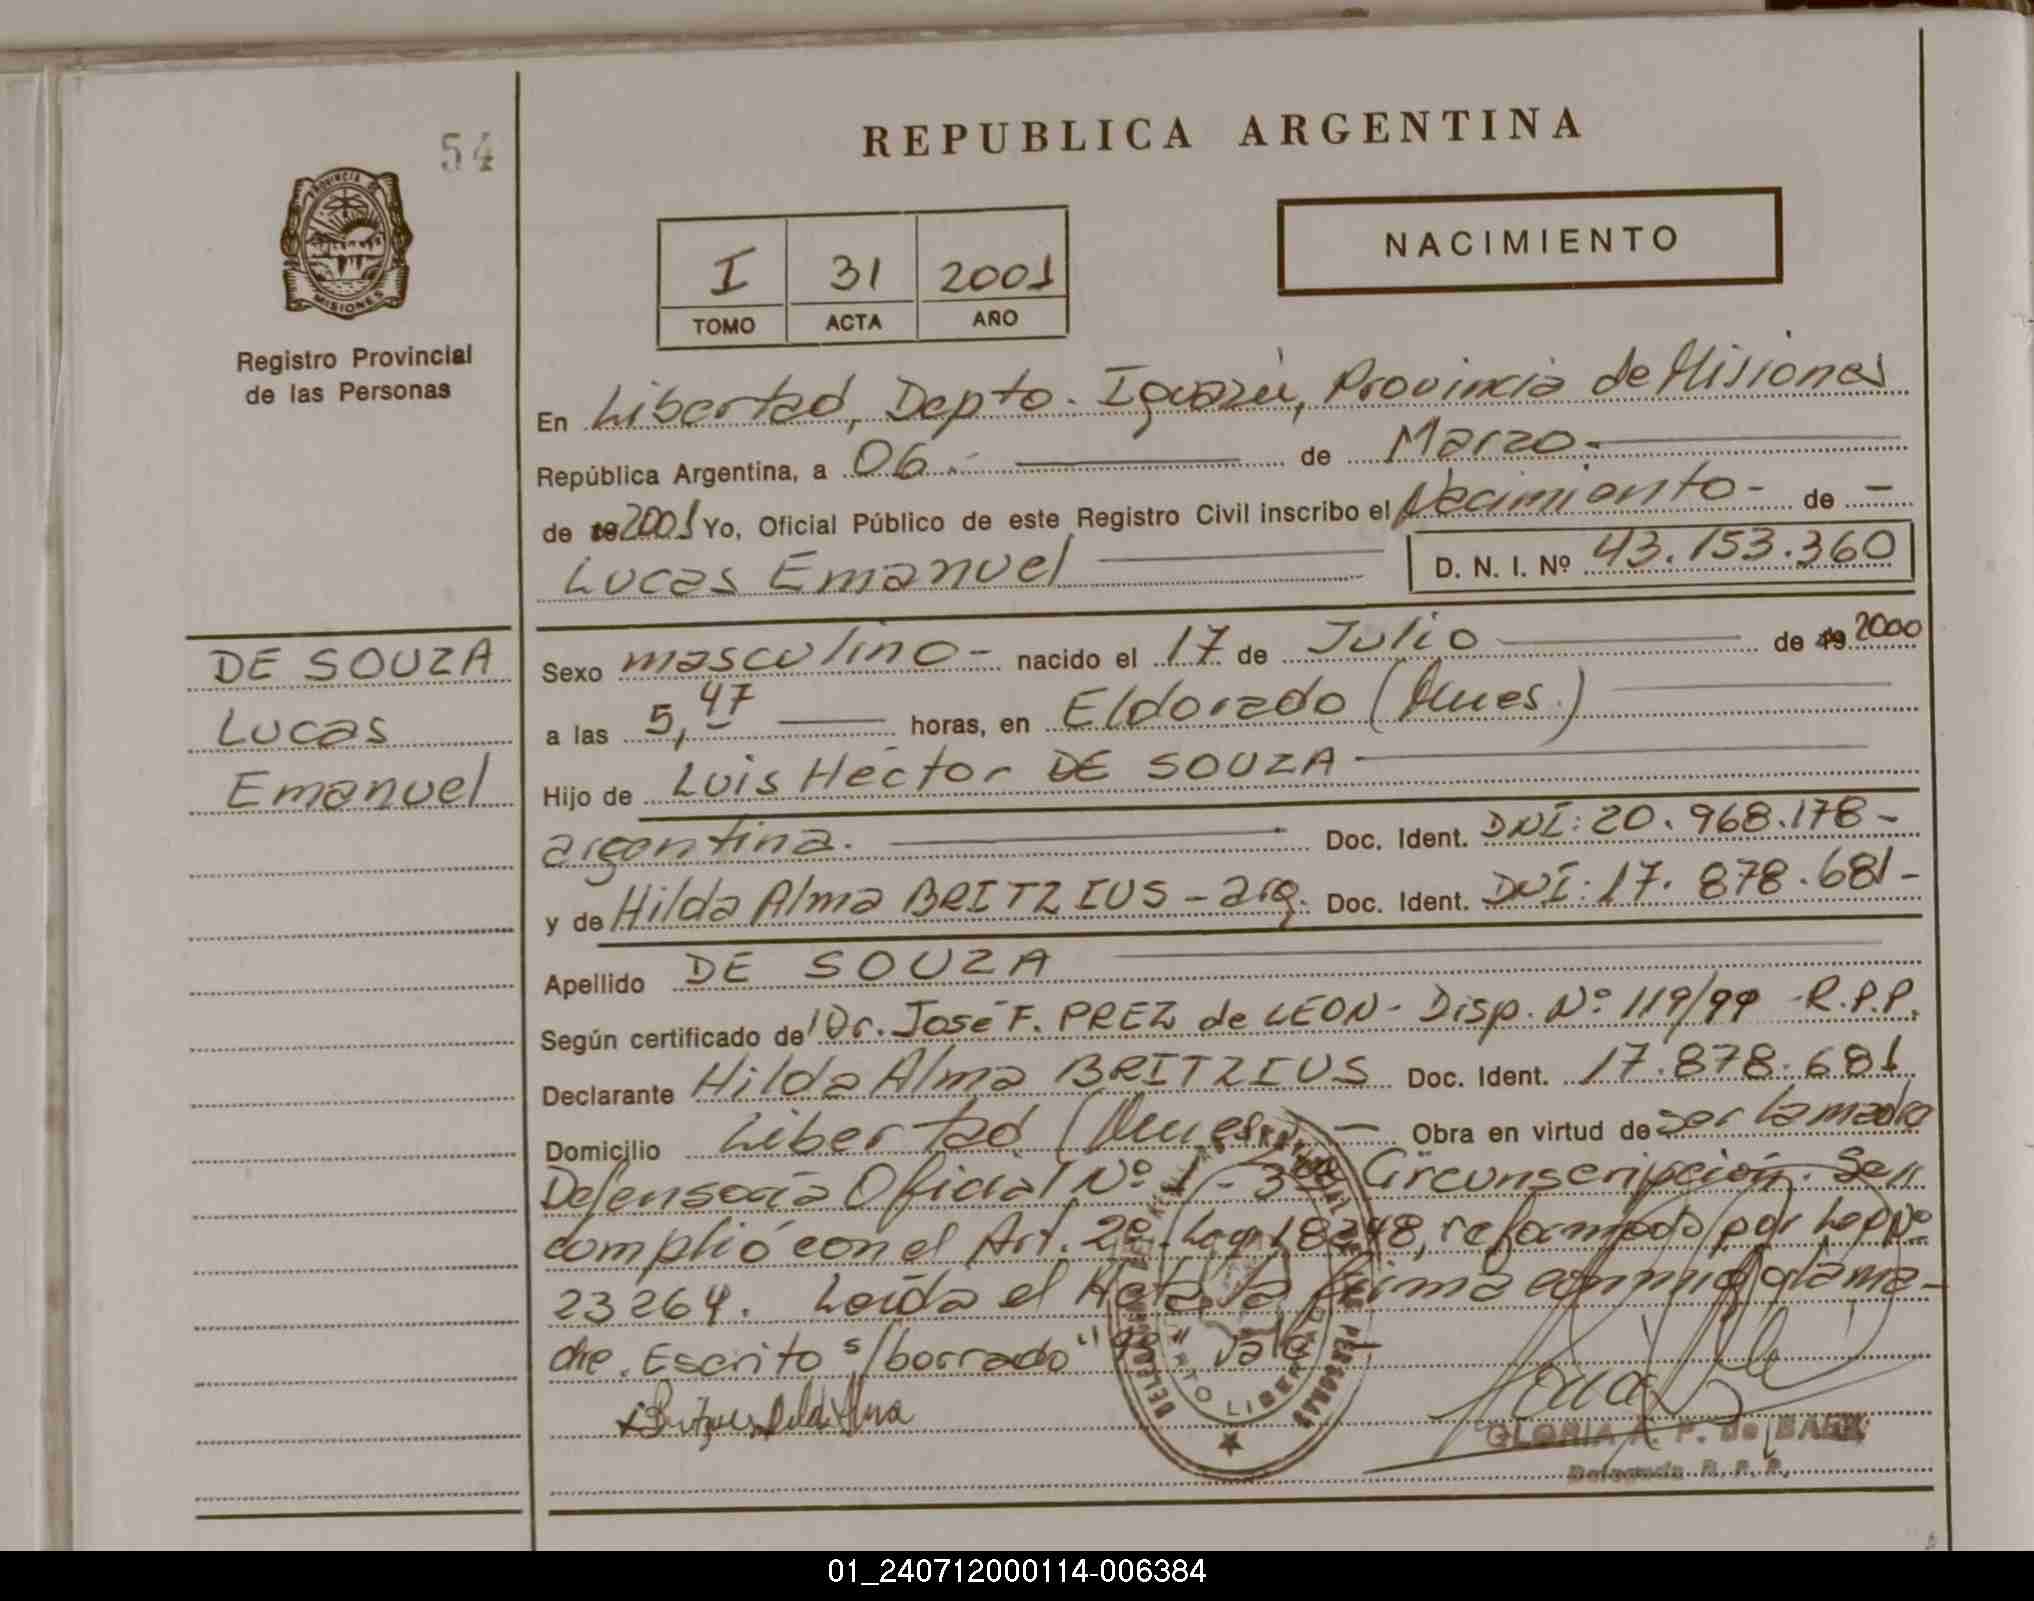 54
REPUBLICA ARGENTINA
NACIMIENTO
PROVINCIA DE
MISIONES
Registro Provincial
de las Personas
I 31 2001
TOMO ACTA AÑO
En Libertad, Depto. Iguazú, Provincia de Misiones
República Argentina, a 06.- de Marzo.-
de 19 2001 Yo, Oficial Público de este Registro Civil inscribo el Nacimiento - de -
Lucas Emanuel D. N. I. Nº 43.153.360
DE SOUZA
Lucas
Emanuel
Sexo masculino - nacido el 17 de Julio de 19 2000
a las 5,47 horas, en Eldorado (Mnes.)
Hijo de Luis Héctor DE SOUZA
argentina. Doc. Ident. DNI: 20.968.178 -
y de Hilda Alma BRITZIUS - arg. Doc. Ident. DNI: 17.878.681 -
Apellido DE SOUZA
Según certificado de Dr. José F. PREZ de LEON - Disp. Nº 119/99 - R.P.P.
Declarante Hilda Alma BRITZIUS Doc. Ident. 17.878.681
Domicilio Libertad (Mnes) - Obra en virtud de ser la madre
Defensoría Oficial Nº 1 - 3ra Circunscripción. Se
cumplió con el Art. 2º Ley 18248, reformado por Ley Nº
23264. Leída el Acta la firma conmigo la ma-
dre. Escrito s/borrado "99" Vale -
GLORIA A. F. de
Delegada R. P. P.
01_240712000114-006384